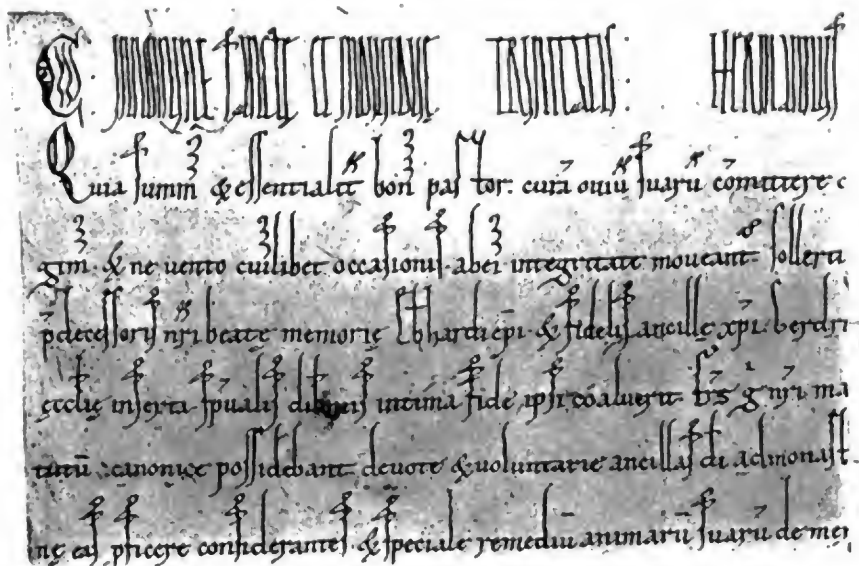 C IN NOMINE SANCTE ET INDIVIDUE TRINITATIS HERMANNUS
Quia summ̄ & essentialit̄ bon̄ pastor. curā oviū suarū cōmittere
gim̄. & ne vento cuilibet occasionis. ab ei integritate moveant. sollerti
p̄decessoris nr̄i beate memorie ep̄i. & fidelis ancille xp̄i. berdri
ęcclię inserta sp̄ualis intima fide ipsi coaluerit. g̊ nr̄i ma
tutū. canonice possidebant devote & voluntarie ancillas dī ad monast
nę eas p̄ficere considerantes. & speciale remediū animarū suarū de mer